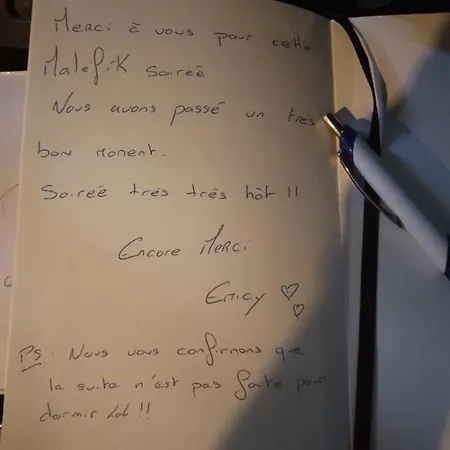 Merci à vous pour cette
Malefik soirée
Nous avons passé un très
bon moment.
Soirée très très hôt !!
Encore Merci
Emicy ♡♡
PS. Nous vous confirmons que
la suite n'est pas faite pour
dormir Lol !!